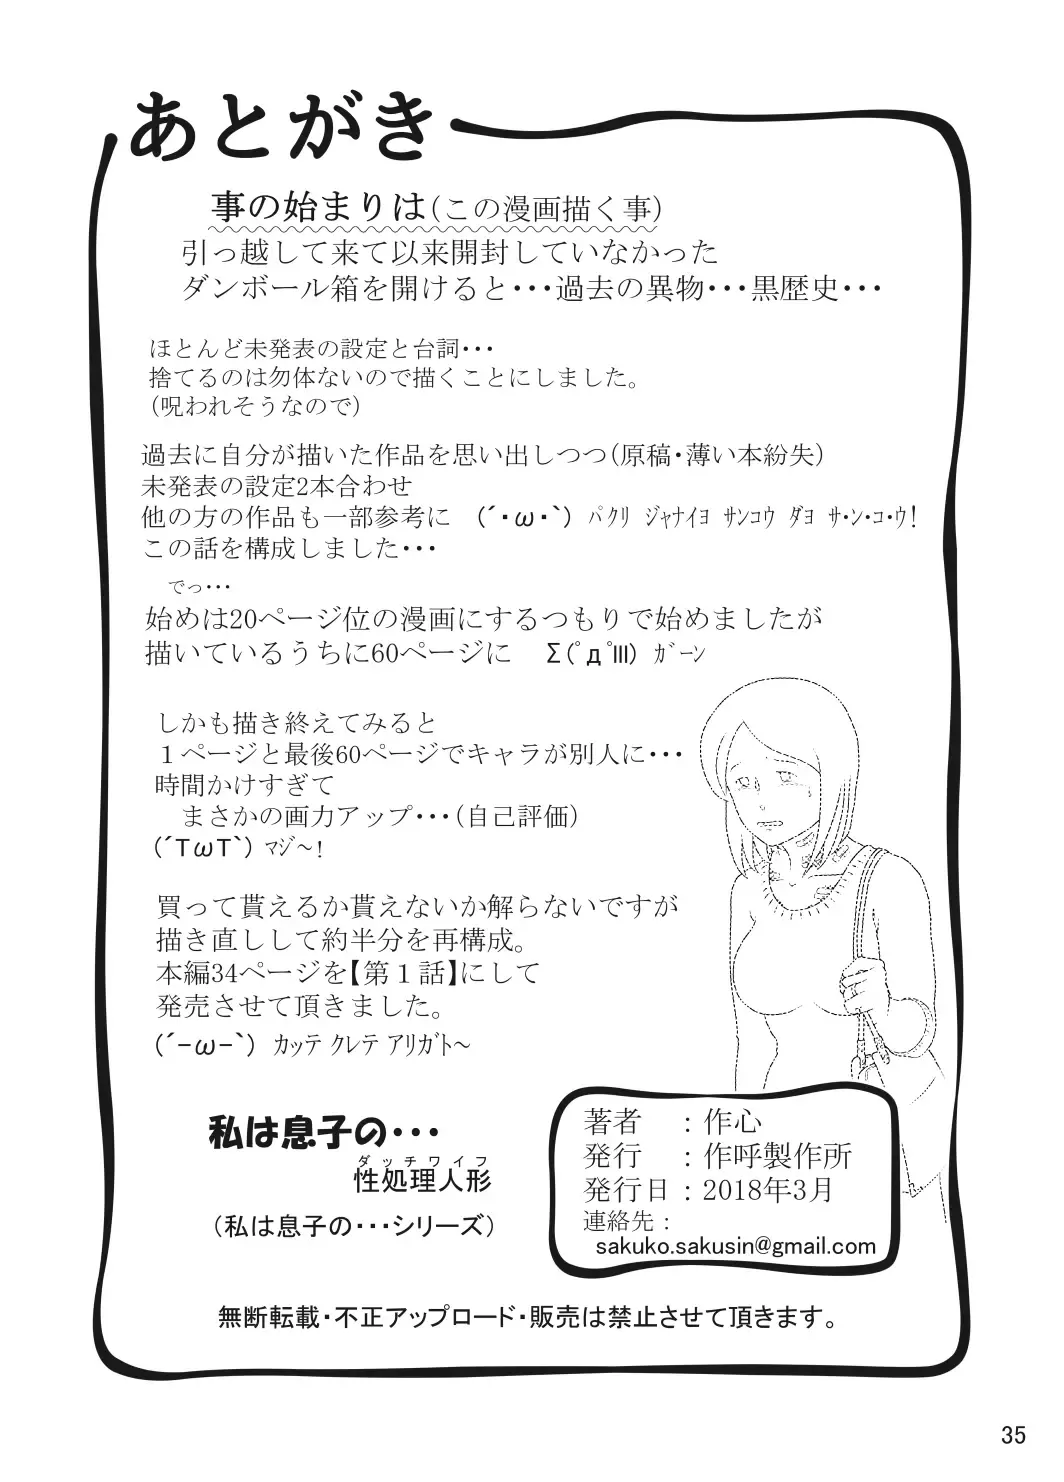 あとがき
事の始まりは(この漫画描く事)
引っ越して来て以来開封していなかった
ダンボール箱を開けると・・・過去の異物・・・黒歴史・・・
ほとんど未発表の設定と台詞・・・
捨てるのは勿体ないので描くことにしました。
(呪われそうなので)
過去に自分が描いた作品を思い出しつつ(原稿・薄い本紛失)
未発表の設定2本合わせ
他の方の作品も一部参考に (´・ω・`) ﾊﾟｸﾘ ｼﾞｬﾅｲﾖ ｻﾝｺｳ ﾀﾞﾖ ｻ・ﾝ・ｺ・ｳ!
この話を構成しました・・・
でっ・・・
始めは20ページ位の漫画にするつもりで始めましたが
描いているうちに60ページに Σ(ﾟдﾟⅢ) ｶﾞｰﾝ
しかも描き終えてみると
１ページと最後60ページでキャラが別人に・・・
時間かけすぎて
まさかの画力アップ・・・(自己評価)
(´TωT`) ﾏｼﾞ～!
買って貰えるか貰えないか解らないですが
描き直しして約半分を再構成。
本編34ページを【第１話】にして
発売させて頂きました。
(´-ω-`) ｶｯﾃ ｸﾚﾃ ｱﾘｶﾞﾄ～
私は息子の・・・
ダッチワイフ
性処理人形
(私は息子の・・・シリーズ)
著者 : 作心
発行 : 作呼製作所
発行日 : 2018年3月
連絡先 :
sakuko.sakusin@gmail.com
無断転載・不正アップロード・販売は禁止させて頂きます。
35